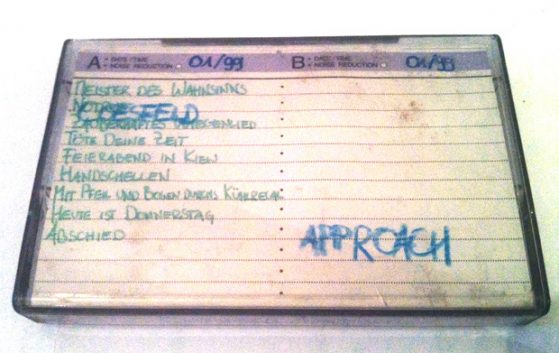 A • DATE/TIME • NOISE REDUCTION 01/99
B • DATE/TIME • NOISE REDUCTION 01/99
MEISTER DES WAHNSINNS
COESFELD
TÖTE DEINE ZEIT
FEIERABEND IN KIEW
HANDSCHELLEN
MIT PFEIL UND BOGEN DURCHS
HEUTE IST DONNERSTAG
ABSCHIED
APPROACH